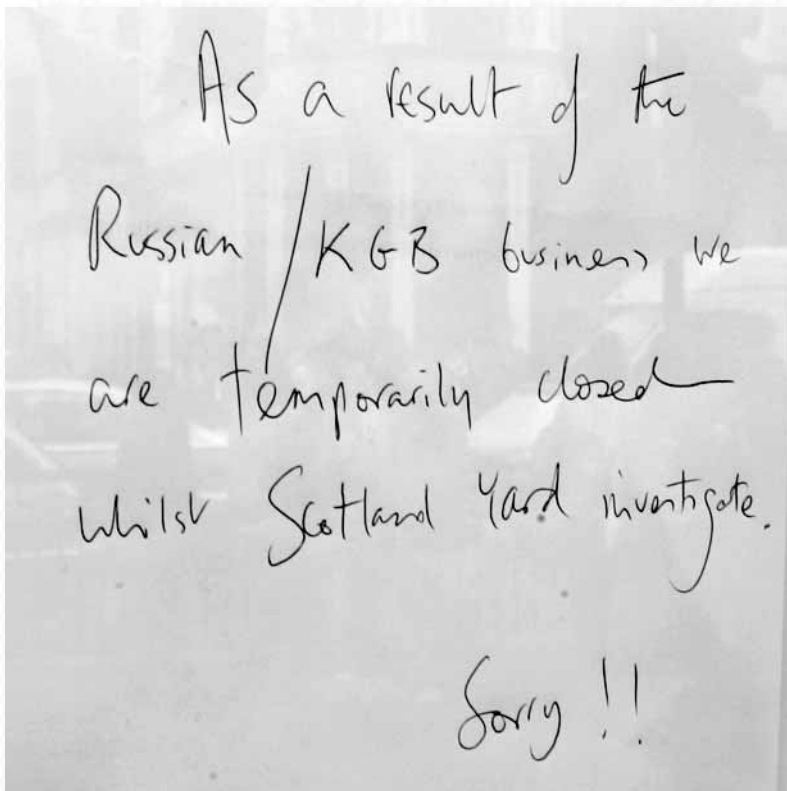 As a result of the
Russian / KGB business we
are temporarily closed
whilst Scotland Yard investigate.
Sorry !!